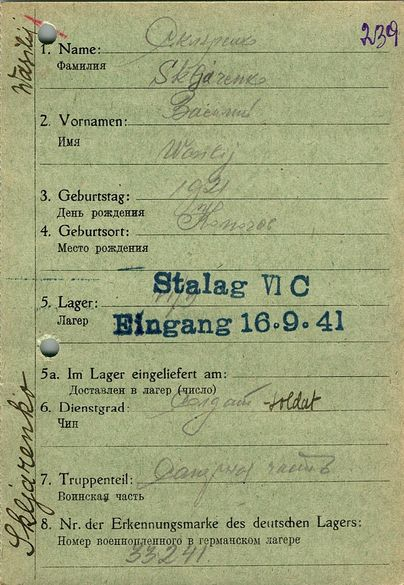 Wasilij
239
1. Name: Скляренко
Фамилия
Skljarenko
2. Vornamen: Василий
Имя
Wasilij
3. Geburtstag: 1921
День рождения
4. Geburtsort:
Место рождения
Stalag VI C
5. Lager:
Лагер
Eingang 16.9.41
5a. Im Lager eingeliefert am:
Доставлен в лагер (число)
6. Dienstgrad: Солдат - soldat
Чин
7. Truppenteil: часть
Воинская часть
8. Nr. der Erkennungsmarke des deutschen Lagers:
Номер военнопленного в германском лагере
33241
Skljarenko